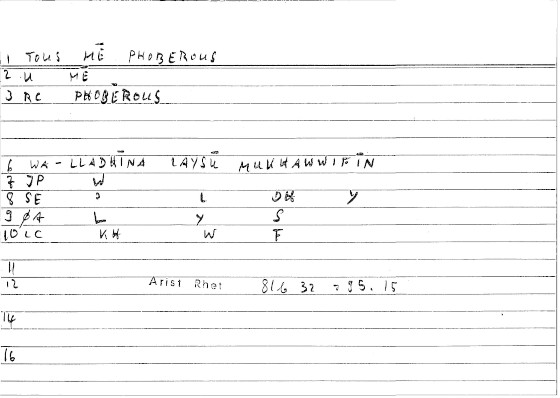 1 TOUS MĒ PHOBEROUS
2 U MĒ
3 RC PHOBEROUS
6 WA-LLADHĪNA LAYSŪ MUKHAWWIFĪN
7 JP W
8 SE L DH Y
9 ØA L Y S
10 LC KH W F
11
12 Arist Rhet 816 32 = 95.15
14
16